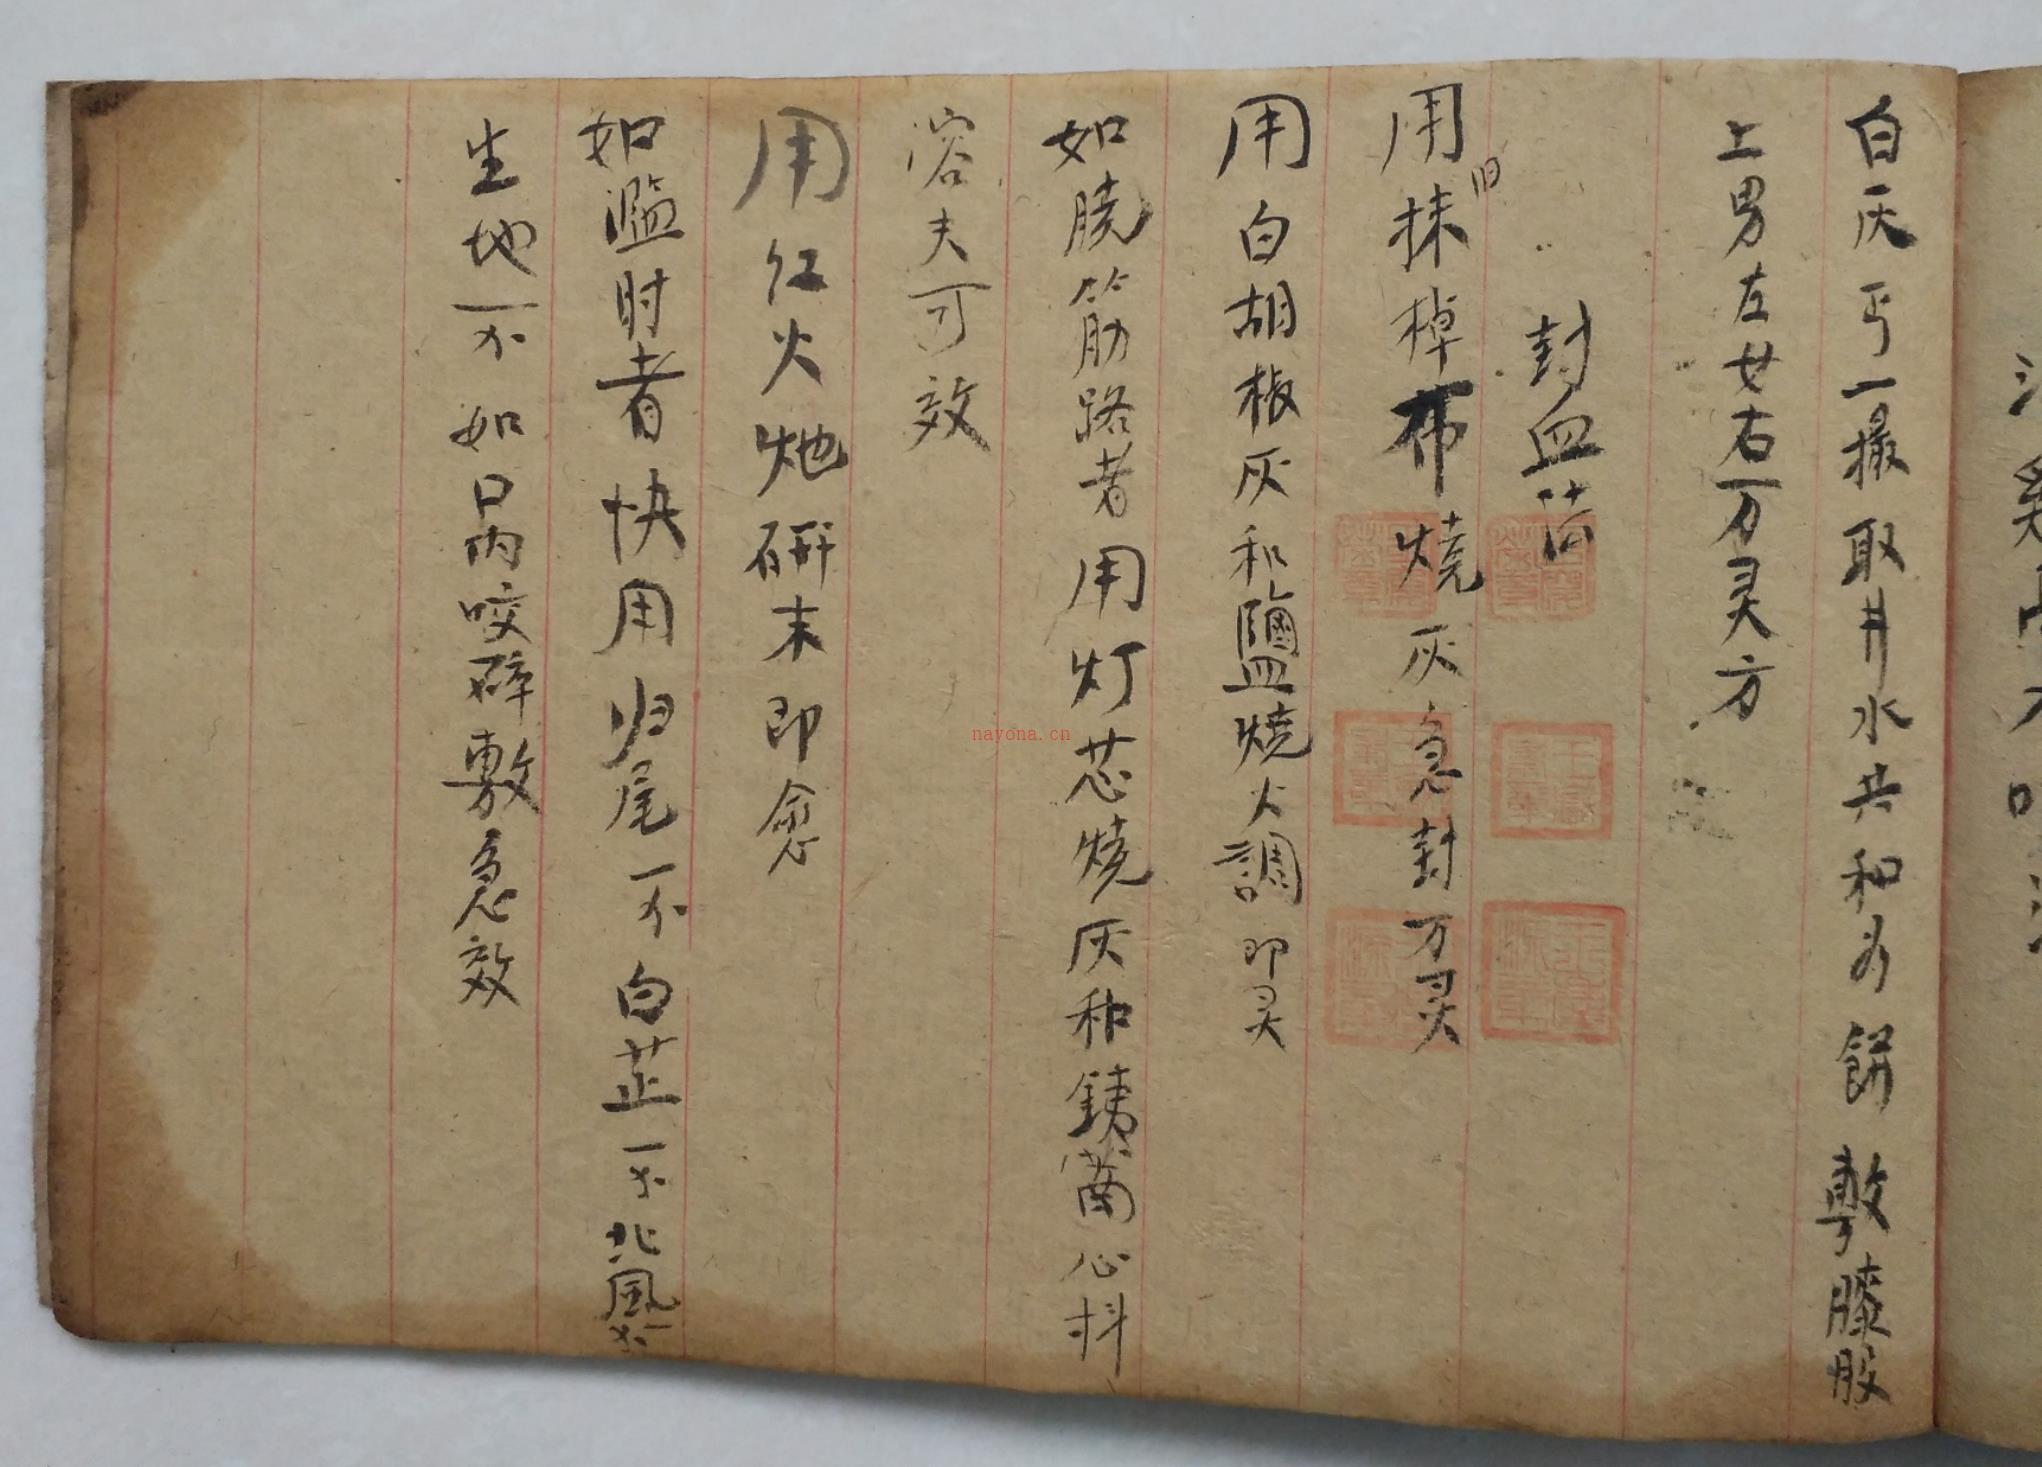 白灰丐一撮取井水共和为餅敷膝股
上男左女右万灵方
封血法
用抹旧棹布燒灰急封万灵
用白胡椒灰和鹽燒火調即灵
如脕筋路者用灯芯燒灰和銕菌心抖
溶夫可效
用红火炧研末即愈
如濫时者快用归尾一不白芷一不北風一不
生地一不如口內咬碎敷急效
nayona.cn